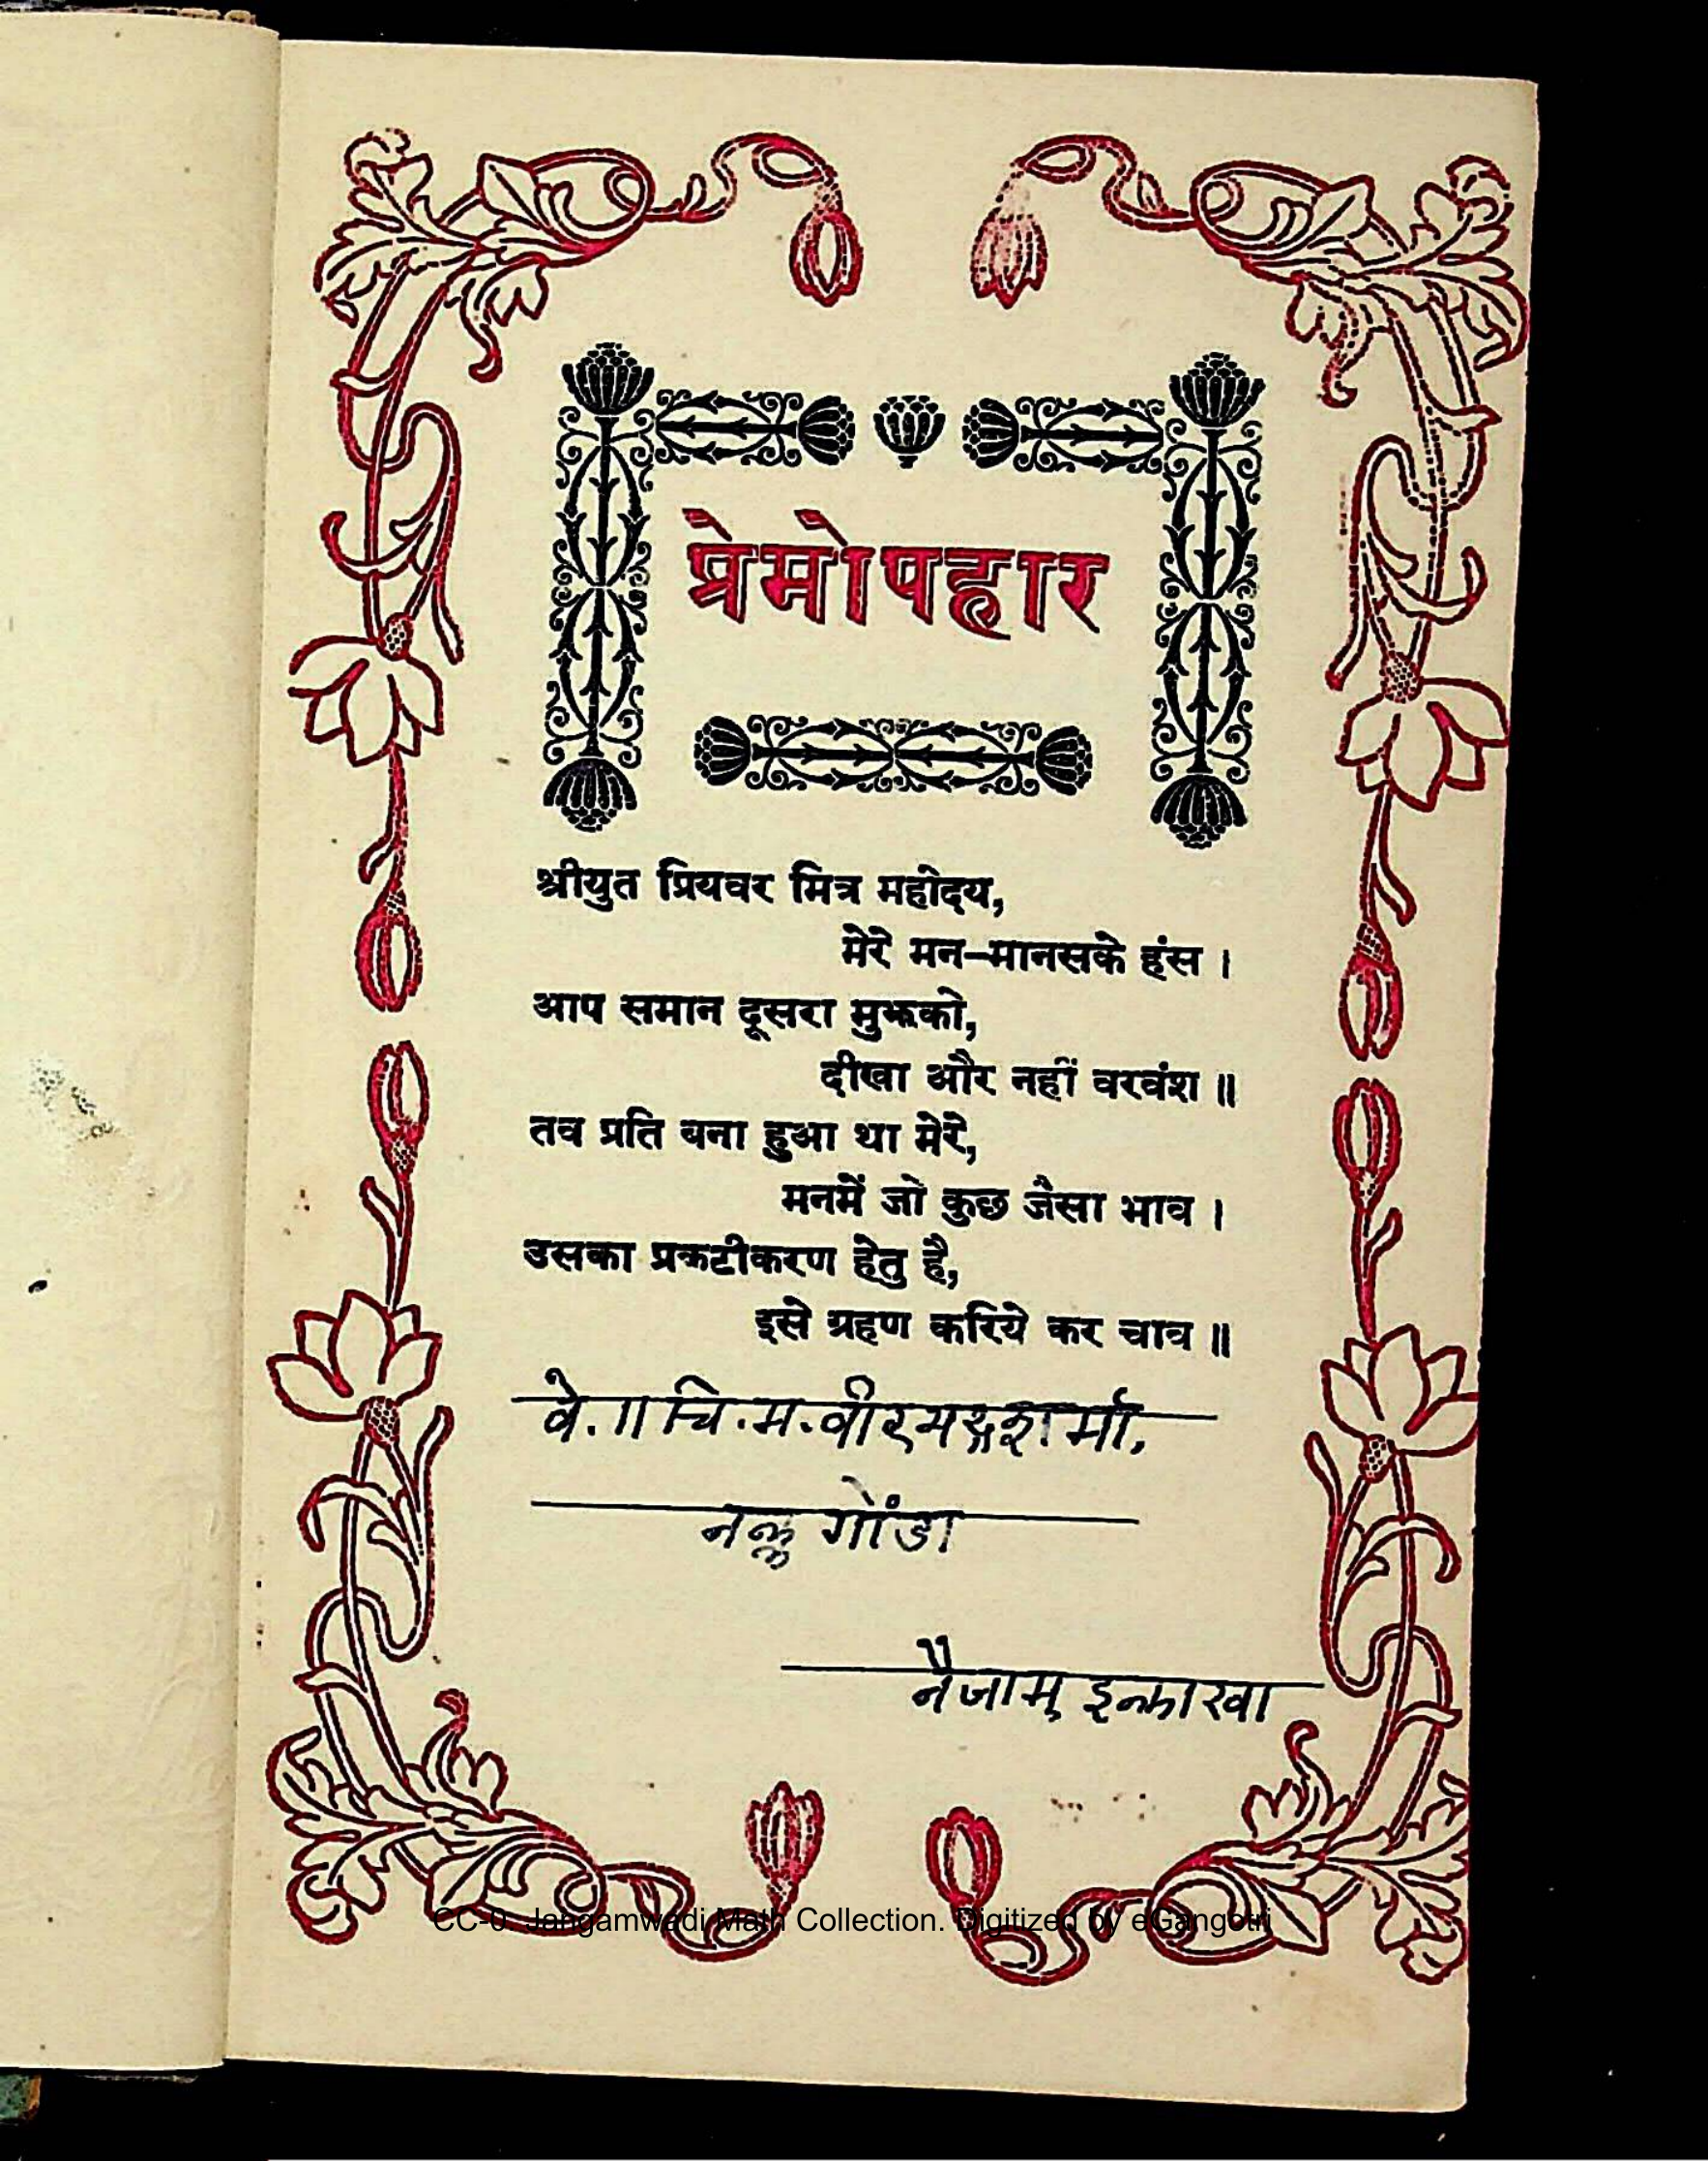 प्रेमोपहार
श्रीयुत प्रियवर मित्र महोदय,
मेरे मन-मानसके हंस ।
आप समान दूसरा मुझको,
दीखा और नहीं वरवंश ॥
तव प्रति बना हुआ था मेरे,
मनमें जो कुछ जैसा भाव ।
उसका प्रकटीकरण हेतु है,
इसे ग्रहण करिये कर चाव ॥
वे. ॥ चि. म.
गोंडा
CC-0. Jangamwadi Math Collection. Digitized by eGangotri